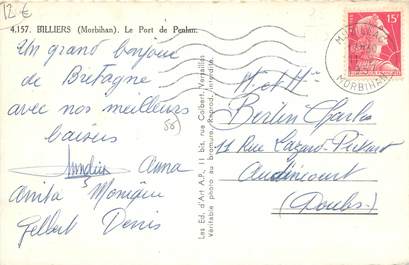 12 €
4.157. BILLIERS (Morbihan). Le Port de Penlan.
Un grand bonjour
de Bretagne
avec nos meilleurs
baisers
Anna
Anita Monique
Gilbert Denis
Les Ed. d'Art A.P., 11 bis, rue Colbert, Versailles
Véritable photo au bromure. Reprod. interdite.
15F
MORBIHAN
M. et Mme
Berlin Charles
11 Rue Lazard-
Audincourt
(Doubs)